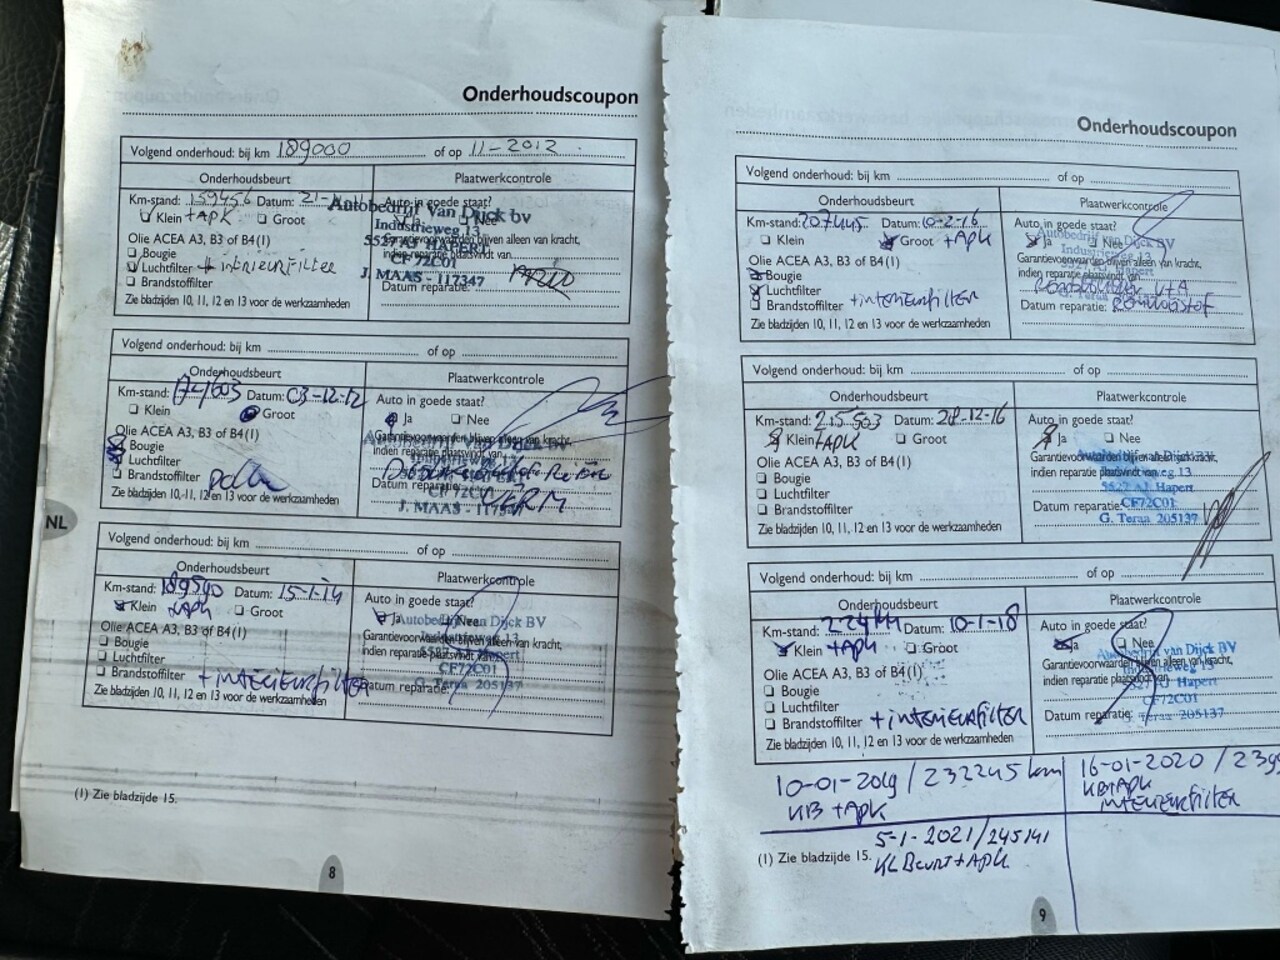 Onderhoudscoupon
Volgend onderhoud: bij km 189000 of op 11-2012
Onderhoudsbeurt Plaatwerkcontrole
Km-stand: 159456 Datum: 21- Auto in goede staat?
Klein + APK Groot Ja Nee
Autobedrijf Van Dijck bv
Industrieweg 13
Olie ACEA A3, B3 of B4(1) Garantievoorwaarden blijven alleen van kracht,
5527 AJ HAPERT
Bougie indien reparatie plaatsvindt van
CF72C01
Luchtfilter + interieurfilter
J. MAAS - 117347
Brandstoffilter Datum reparatie:
Zie bladzijden 10, 11, 12 en 13 voor de werkzaamheden
Volgend onderhoud: bij km of op
Onderhoudsbeurt Plaatwerkcontrole
Km-stand: 174603 Datum: 03-12-12 Auto in goede staat?
Klein Groot Ja Nee
Olie ACEA A3, B3 of B4(1) Garantievoorwaarden blijven alleen van kracht,
Autobedrijf Van Dijck BV
Bougie indien reparatie plaatsvindt van
Luchtfilter
Brandstoffilter Datum reparatie:
CF72C01
J. MAAS - 117347
Zie bladzijden 10, 11, 12 en 13 voor de werkzaamheden
NL
Volgend onderhoud: bij km of op
Onderhoudsbeurt Plaatwerkcontrole
Km-stand: 189590 Datum: 15-1-14 Auto in goede staat?
Klein + APK Groot Ja Nee
Autobedrijf van Dijck BV
Industrieweg 13
Olie ACEA A3, B3 of B4(1) Garantievoorwaarden blijven alleen van kracht,
5527 AJ Hapert
Bougie indien reparatie plaatsvindt van
CF72C01
Luchtfilter
G. Teraa 205137
Brandstoffilter + interieurfilter Datum reparatie:
Zie bladzijden 10, 11, 12 en 13 voor de werkzaamheden
(1) Zie bladzijde 15.
8
Onderhoudscoupon
Volgend onderhoud: bij km of op
Onderhoudsbeurt Plaatwerkcontrole
Km-stand: 207445 Datum: 10-2-16 Auto in goede staat?
Klein Groot + APK Ja Nee
Autobedrijf van Dijck BV
Industrieweg 13
Olie ACEA A3, B3 of B4(1) Garantievoorwaarden blijven alleen van kracht,
5527 AJ Hapert
Bougie indien reparatie plaatsvindt van
Luchtfilter V+A
G. Teraa
Brandstoffilter + interieurfilter Datum reparatie: Remvloeistof
Zie bladzijden 10, 11, 12 en 13 voor de werkzaamheden
Volgend onderhoud: bij km of op
Onderhoudsbeurt Plaatwerkcontrole
Km-stand: 215563 Datum: 28-12-16 Auto in goede staat?
Klein + APK Groot Ja Nee
Olie ACEA A3, B3 of B4(1) Garantievoorwaarden blijven alleen van kracht,
Autobedrijf van Dijck BV
Bougie indien reparatie plaatsvindt van
Industrieweg 13
Luchtfilter
5527 AJ Hapert
Brandstoffilter Datum reparatie:
CF72C01
G. Teraa 205137
Zie bladzijden 10, 11, 12 en 13 voor de werkzaamheden
Volgend onderhoud: bij km of op
Onderhoudsbeurt Plaatwerkcontrole
Km-stand: Datum: 10-1-18 Auto in goede staat?
Klein + APK Groot Ja Nee
Autobedrijf van Dijck BV
Olie ACEA A3, B3 of B4(1) Garantievoorwaarden blijven alleen van kracht,
Industrieweg 13
Bougie indien reparatie plaatsvindt van
5527 AJ Hapert
Luchtfilter
CF72C01
Brandstoffilter + interieurfilter Datum reparatie:
G. Teraa 205137
Zie bladzijden 10, 11, 12 en 13 voor de werkzaamheden
10-01-2019 / 232245 km
KB + APK
16-01-2020 / 239
KB+APK
interieurfilter
5-1-2021 / 245141
KL Beurt + APK
(1) Zie bladzijde 15.
9